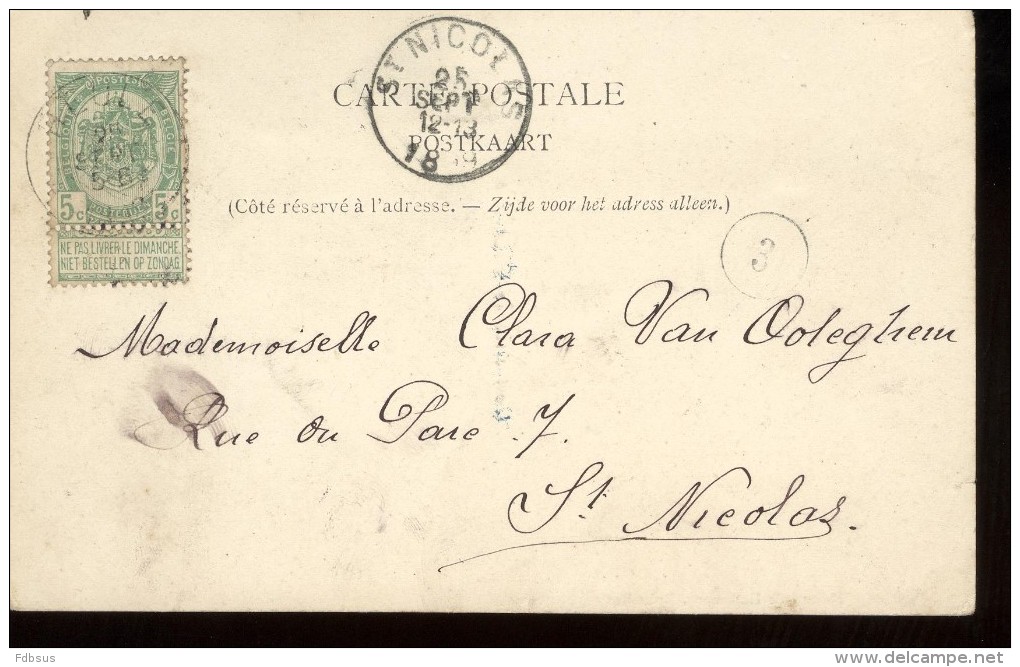 POSTES
BELGIQUE BELGIË
5c 5c
NE PAS LIVRER LE DIMANCHE
NIET BESTELLEN OP ZONDAG
ST NICOLAS
25
SEPT
12-13
18 9
CARTE POSTALE
POSTKAART
(Côté réservé à l'adresse. — Zijde voor het adress alleen.)
3
Mademoiselle Clara Van Ooteghem
Rue du Parc 7.
St Nicolas.
Fdbsus
delcampe.net